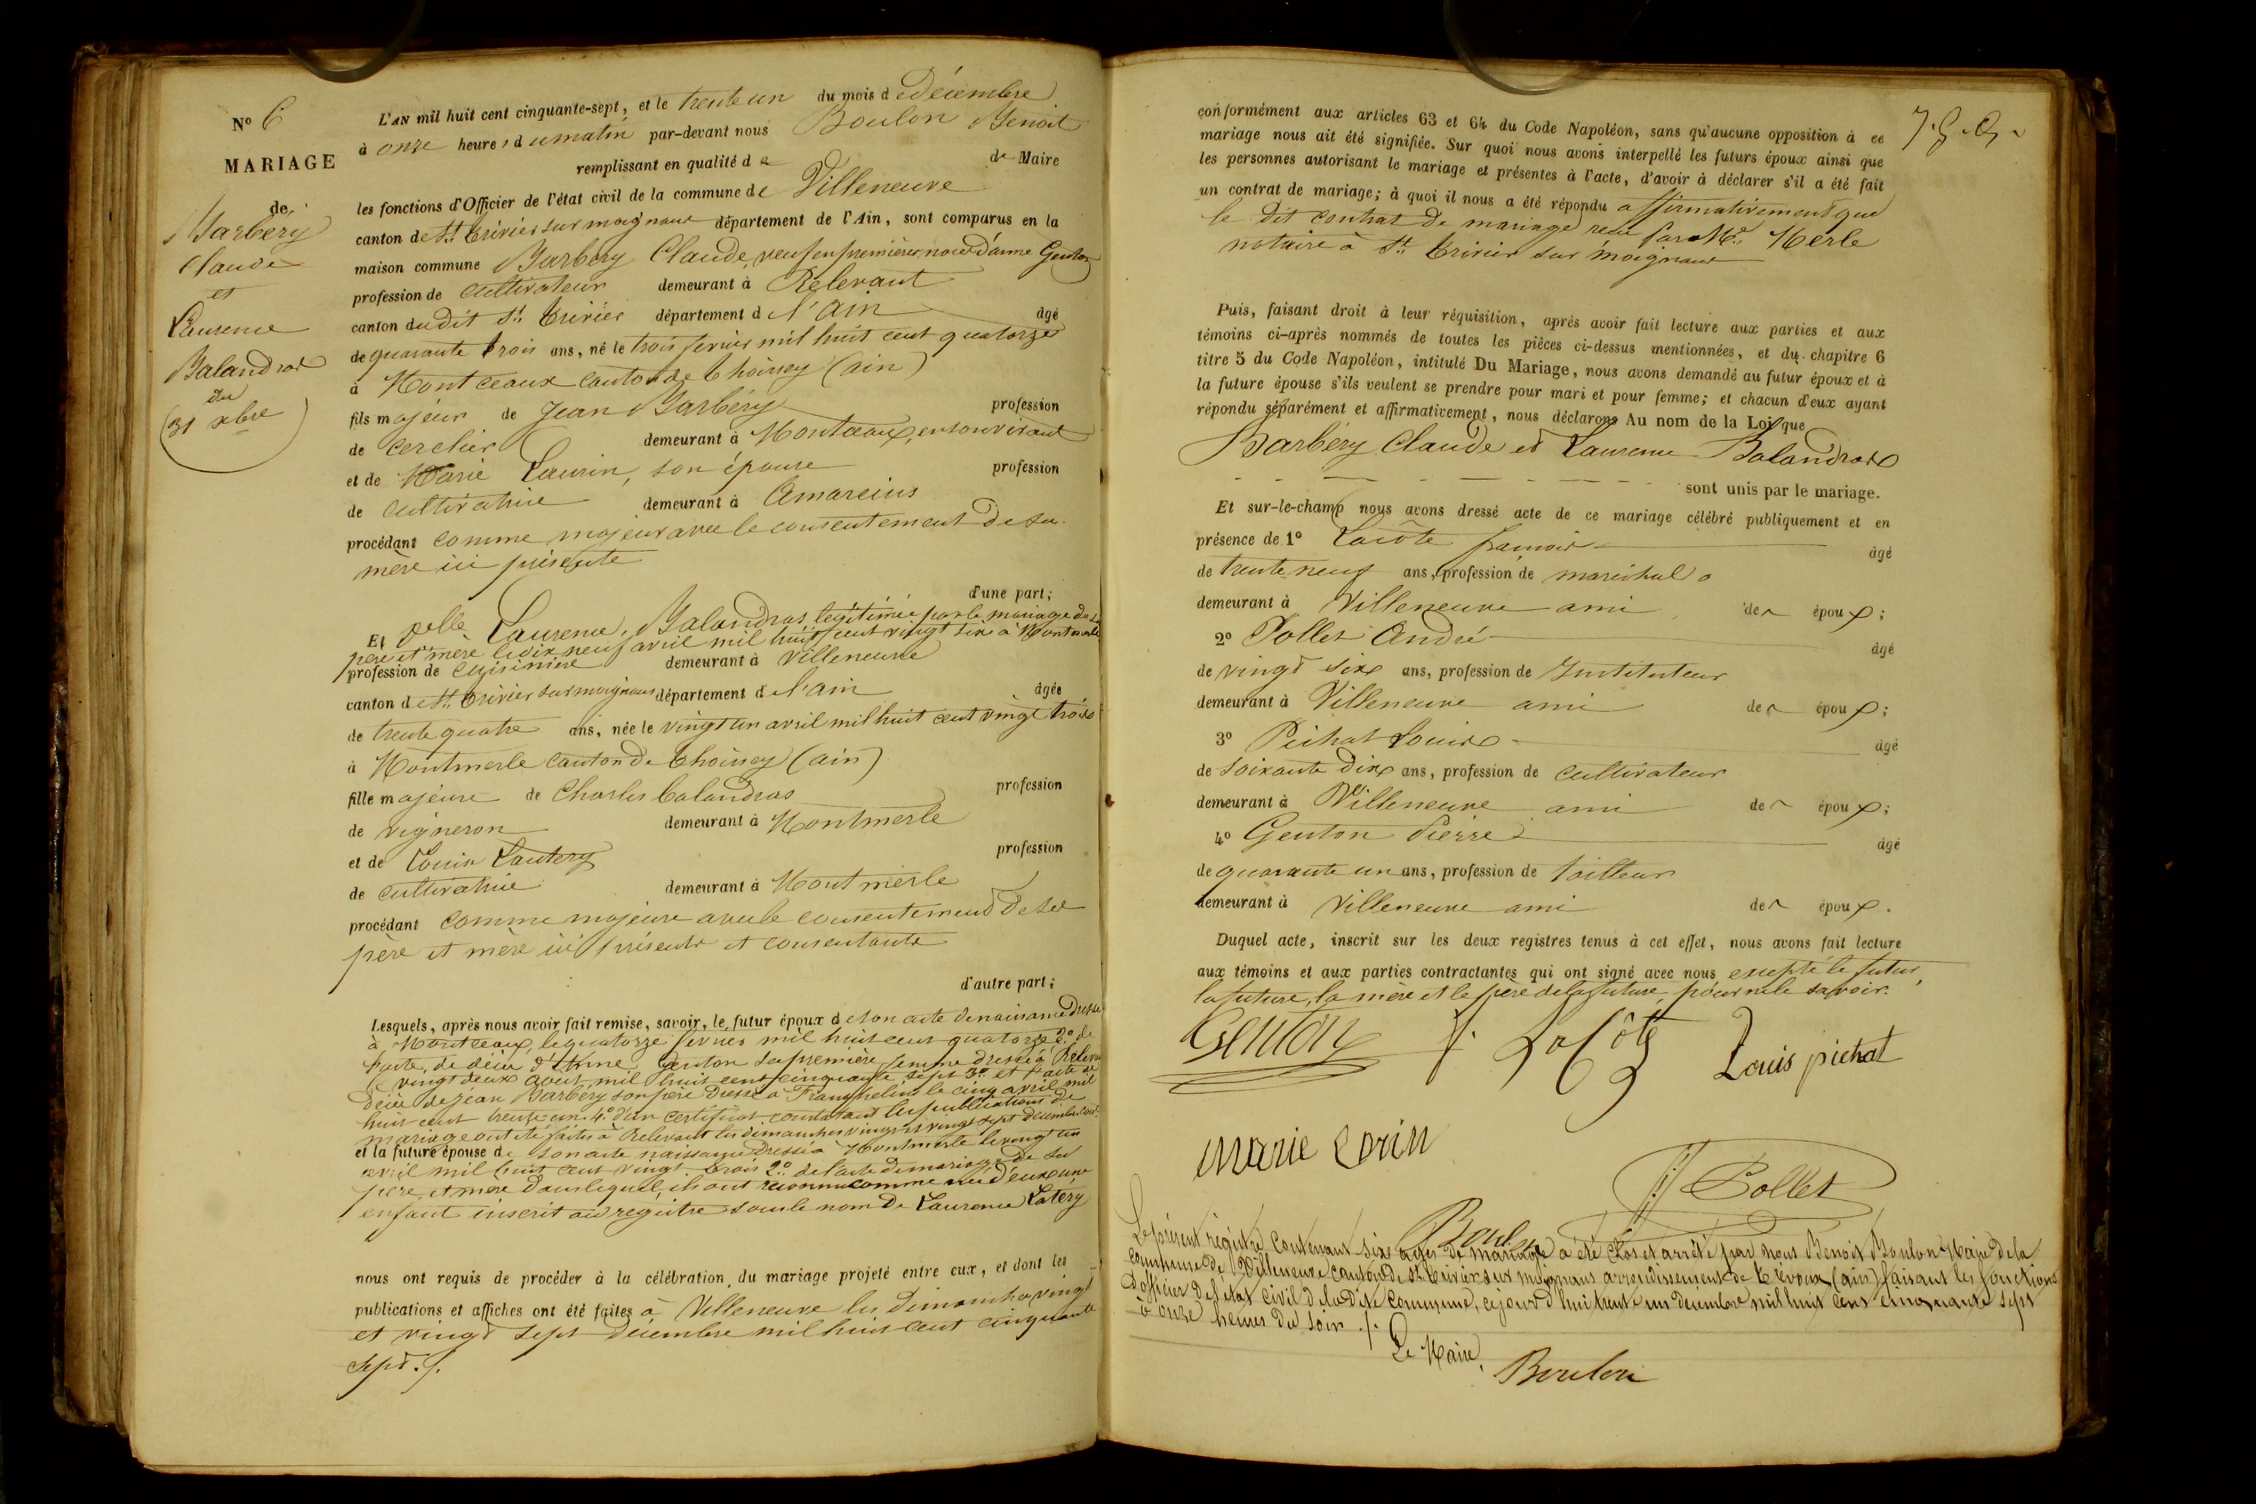 N° 6
MARIAGE
de
Barbéry
Claude
et
Laurence
Balandras
du
(31 xbre)
L'AN mil huit cent cinquante-sept, et le trente un du mois de Décembre
à onze heures du matin par-devant nous Boulon Benoit
remplissant en qualité de Maire
les fonctions d'Officier de l'état civil de la commune de Villeneuve
canton de St Trivier sur moignans département de l'Ain, sont comparus en la
maison commune Barbéry Claude, veuf en premières noces d'anne Genton
profession de cultivateur demeurant à Relevant
canton dudit St Trivier département d l'ain âgé
de quarante trois ans, né le trois fevrier mil huit cent quatorze
à Montceaux canton de thoissey (ain)
fils majeur de Jean Barbéry profession
de cerclier demeurant à Montceaux, en son vivant
et de Marie Laurin, son épouse profession
de cultivatrice demeurant à Amareins
procédant comme majeur avec le consentement de sa
mère ici présente
d'une part;
Et delle Laurence Balandras légitimée par le mariage de ses
père et mère le dix neuf avril mil huit cent vingt six à Montmerle
profession de cuisinière demeurant à Villeneuve
canton de St Trivier sur moignans département d l'ain âgée
de trente quatre ans, née le vingt un avril mil huit cent vingt trois
à Montmerle canton de thoissey (ain)
fille majeure de Charles balandras profession
de vigneron demeurant à Montmerle
et de Louise Lautery profession
de cultivatrice demeurant à Montmerle
procédant comme majeure avec le consentement de ses
père et mère ici présents et consentants
d'autre part;
Lesquels, après nous avoir fait remise, savoir, le futur époux de son acte de naissance dressé
à Montceaux, le quatorze février mil huit cent quatorze 2° de
l'acte de décès d'Anne Genton sa première femme dressé à Relevant
vingt deux aout mil huit cent cinquante sept 3° et l'acte de
décès de Jean Barbéry son père dressé à Francheleins le cinq avril mil
huit cent trente un 4° d'un certificat constatant les publications de
mariage ont été faites à Relevant les dimanches vingt et vingt sept décembre
et la future épouse de son acte naissance dressé à Montmerle le vingt un
avril mil huit cent vingt trois 2° de l'acte de mariage de ses
père et mère dans lequel, ils ont reconnu comme née d'eux une
enfant inscrit au registre sous le nom de Laurence Latéry
nous ont requis de procéder à la célébration du mariage projeté entre eux, et dont les
publications et affiches ont été faites à Villeneuve les dimanches vingt
et vingt sept décembre mil huit cent cinquante
sept ./.
conformément aux articles 63 et 64 du Code Napoléon, sans qu'aucune opposition à ce
mariage nous ait été signifiée. Sur quoi nous avons interpellé les futurs époux ainsi que
les personnes autorisant le mariage et présentes à l'acte, d'avoir à déclarer s'il a été fait
un contrat de mariage; à quoi il nous a été répondu affirmativement que
le dit contrat de mariage reçu par Me Merle
notaire à St Trivier sur moignans
Puis, faisant droit à leur réquisition, après avoir fait lecture aux parties et aux
témoins ci-après nommés de toutes les pièces ci-dessus mentionnées, et du chapitre 6
titre 5 du Code Napoléon, intitulé Du Mariage, nous avons demandé au futur époux et à
la future épouse s'ils veulent se prendre pour mari et pour femme; et chacun d'eux ayant
répondu séparément et affirmativement, nous déclarons Au nom de la Loi que
Barbéry Claude et Laurence Balandras
sont unis par le mariage.
Et sur-le-champ nous avons dressé acte de ce mariage célébré publiquement et en
présence de 1° Lacôte françois âgé
de trente neuf ans, profession de maréchal
demeurant à Villeneuve ami des époux;
2° Pollet André âgé
de vingt six ans, profession de Instituteur
demeurant à Villeneuve ami des époux;
3° Pichat Louis âgé
de soixante dix ans, profession de cultivateur
demeurant à Villeneuve ami des époux;
4° Genton Pierre âgé
de quarante un ans, profession de tailleur
demeurant à Villeneuve ami des époux.
Duquel acte, inscrit sur les deux registres tenus à cet effet, nous avons fait lecture
aux témoins et aux parties contractantes qui ont signé avec nous excepté le futur,
la future, la mère et le père de la future, pour ne le savoir.
Genton f. LaCôte Louis pichat
Marie Lorin
A Pollet
Boulon
Le présent régistre contenant six actes de mariage a été clos et arrêté par nous Benoit Boulon Maire de la
commune de Villeneuve canton de St Trivier sur moignans arrondissement de trévoux (ain) faisant les fonctions
d'officier de l'état civil de ladite commune, cejourd'hui trente un décembre mil huit cent cinquante sept
à onze heures du soir ./.
Le Maire,
Boulon